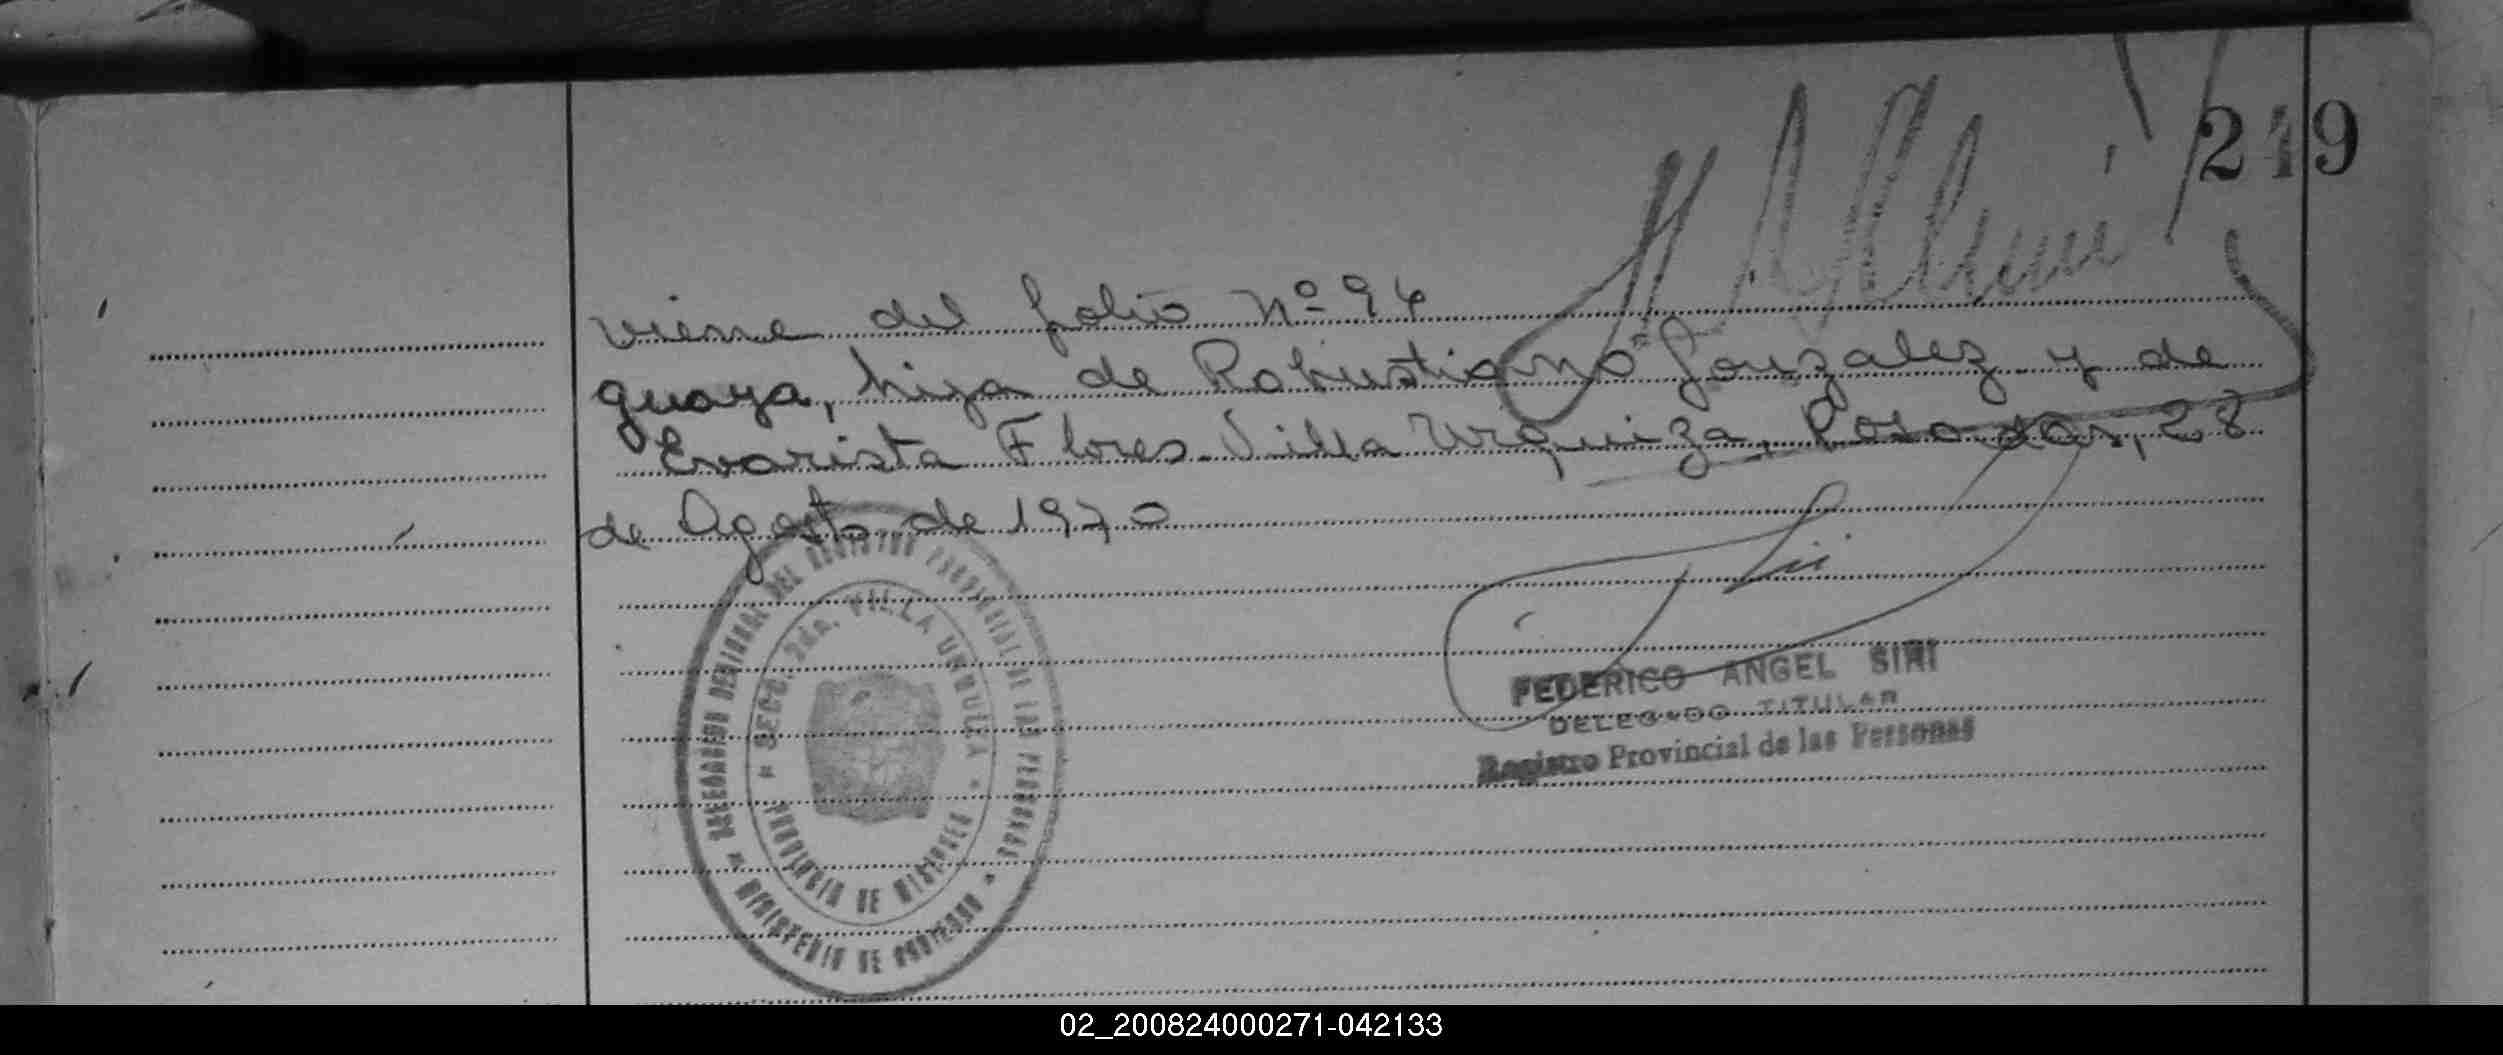 219
viene del folio Nº 94
guaya, hija de Robustiano Gonzalez y de
Evarista Flores. Villa Urquiza, Posadas, 28
de Agosto de 1970
DEL REGISTRO PROVINCIAL DE LAS PERSONAS
* SECC. 2da. VILLA URQUIZA *
PROVINCIA DE MISIONES
* MINISTERIO DE GOBIERNO *
FEDERICO ANGEL SIRI
DELEGADO TITULAR
Registro Provincial de las Personas
02_200824000271-042133